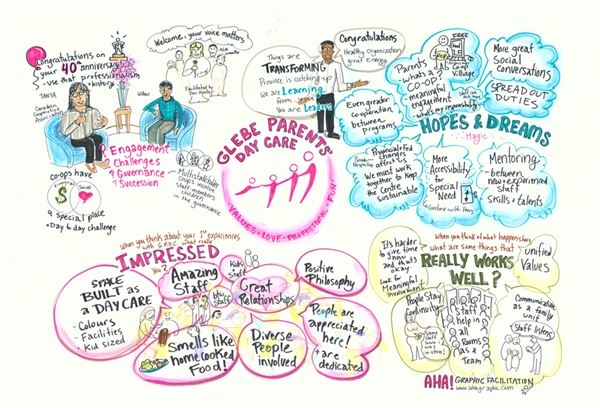 Congratulations on
your 40th anniversary
- Use that professionalism
+ history
TANYA
Canadian Cooperative
Association
? Engagement
? Challenges
? Governance
? Succession
coops have
$
Social
a special place
Day to day challenge
Multistakeholder
coops involve
staff members
children
in the governance
Welcome, your voice matters
Facilitated by
Things are
TRANSFORMING
Province is catching up
We are Learning
from
We are Leaders
Congratulations
Healthy organization
great energy
GLEBE PARENTS'
DAY CARE
VALUES • LOVE • PROFESSIONAL • FUN
Parents
what's a
CO-OP?
meaningful
engagement
what's my responsibility
FREE
Village
More great
Social
conversations
SPREAD OUT
DUTIES
Even greater
Co-operation
between
programs
HOPES & DREAMS
Magic
Provincial/Fed
changes
affect us
We must work
together to keep
the Centre
sustainable
More
Accessibility
for
Special
Need
Mentoring
- between
new + experienced
staff
Skills + talents
When you think about your 1st experiences
with G.P.D.C. what really
IMPRESSED
You?
SPACE
BUILT as
a DAYCARE
- Colours
- Facilities
- Kid sized
Amazing
Staff
Kids
staff
Great
Relationships
Positive
Philosophy
Smells like
home cooked
Food!
Diverse
People
involved
People are
appreciated
here!
+ are
dedicated
When you think of what happens here
what are some things that
REALLY WORKS
WELL?
It's harder
to give time
now and
that's
okay
Look for
Meaningful
Involvement
unified
Values
People Stay
Continuity
Staff
help in
all
Rooms
as a
Team
Communication
as a family
unit
Staff listens
AHA! GRAPHIC FACILITATION
www.ahagraphic.com